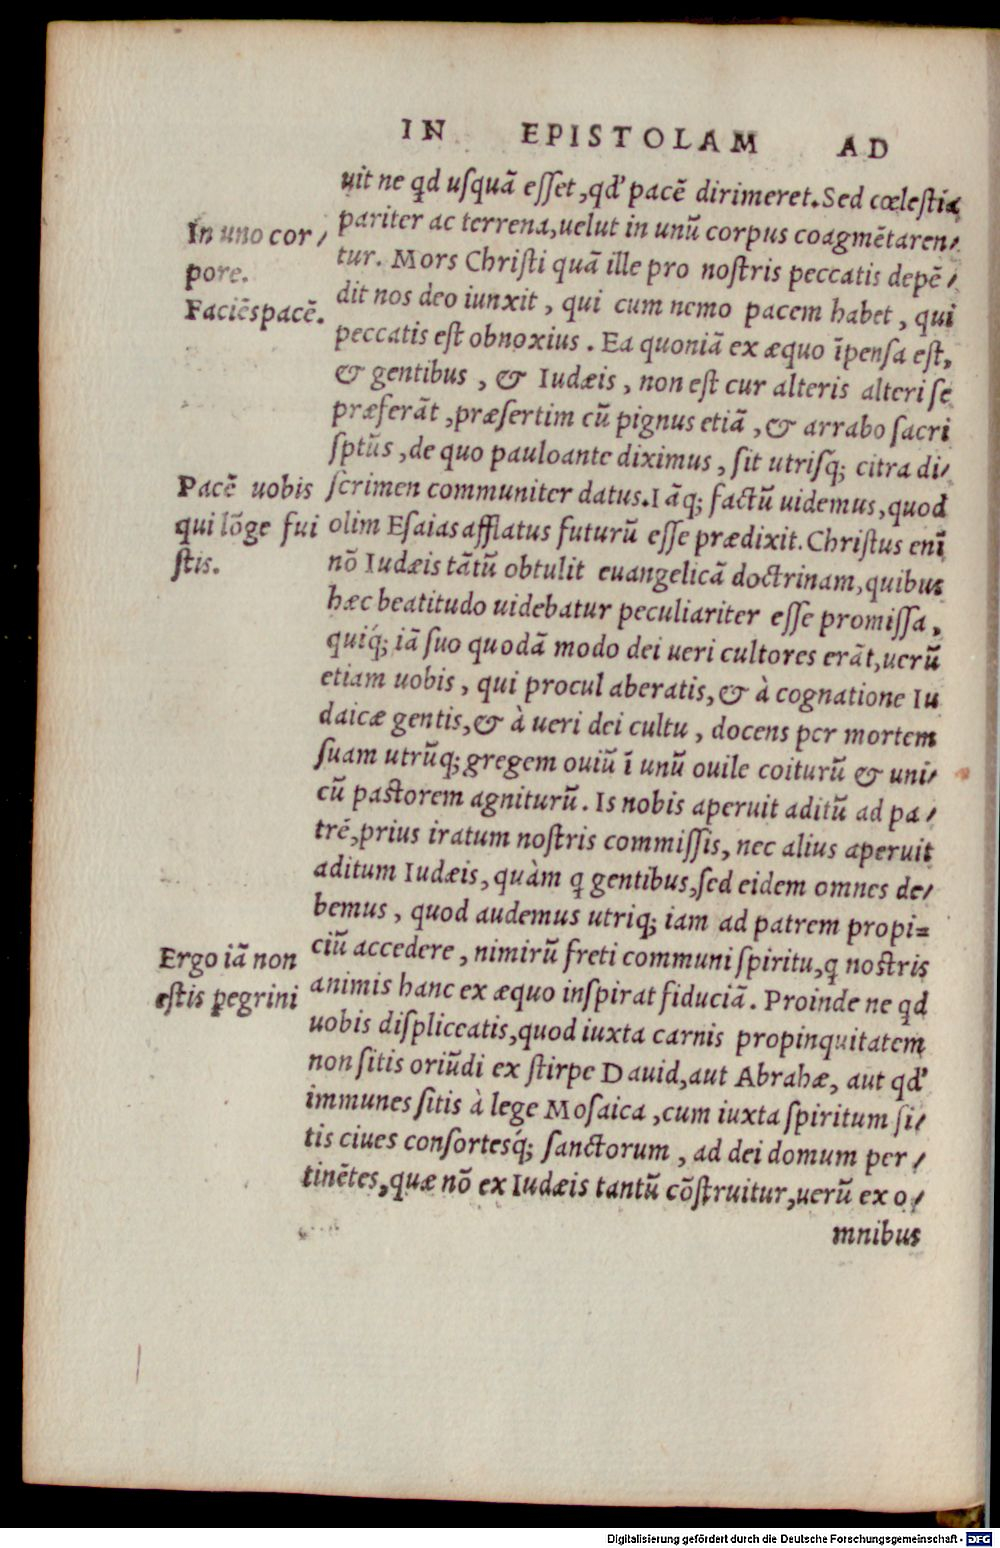 IN EPISTOLAM AD
uit ne qd usquã esset, qd' pacẽ dirimeret. Sed cœlestia
pariter ac terrena, uelut in unũ corpus coagmẽtaren/
tur. Mors Christi quã ille pro nostris peccatis depẽ/
dit nos deo iunxit, qui cum nemo pacem habet, qui
peccatis est obnoxius. Ea quoniã ex æquo ĩpensa est,
& gentibus, & Iudæis, non est cur alteris alteri se
præferãt, præsertim cũ pignus etiã, & arrabo sacri
sptũs, de quo pauloante diximus, sit utrisq; citra di/
scrimen communiter datus. Iãq; factũ uidemus, quod
olim Esaias afflatus futurũ esse prædixit. Christus enĩ
nõ Iudæis tãtũ obtulit euangelicã doctrinam, quibus
hæc beatitudo uidebatur peculiariter esse promissa,
quiq́; iã suo quodã modo dei ueri cultores erãt, uerũ
etiam uobis, qui procul aberatis, & à cognatione Iu
daicæ gentis, & à ueri dei cultu, docens per mortem
suam utrũq; gregem ouiũ ĩ unũ ouile coiturũ & uni/
cũ pastorem agniturũ. Is nobis aperuit aditũ ad pa/
trẽ, prius iratum nostris commissis, nec alius aperuit
aditum Iudæis, quàm q gentibus, sed eidem omnes de/
bemus, quod audemus utriq; iam ad patrem propi=
ciũ accedere, nimirũ freti communi spiritu, q nostris
animis hanc ex æquo inspirat fiduciã. Proinde ne qd
uobis displiceatis, quod iuxta carnis propinquitatem
non sitis oriũdi ex stirpe Dauid, aut Abrahæ, aut qd'
immunes sitis à lege Mosaica, cum iuxta spiritum si/
tis ciues consortesq́; sanctorum, ad dei domum per/
tinẽtes, quæ nõ ex Iudæis tantũ cõstruitur, uerũ ex o/
mnibus
In uno cor/
pore.
Faciẽs pacẽ.
Pacẽ uobis
qui lõge fui
stis.
Ergo iã non
estis pegrini
Digitalisierung gefördert durch die Deutsche Forschungsgemeinschaft - DFG